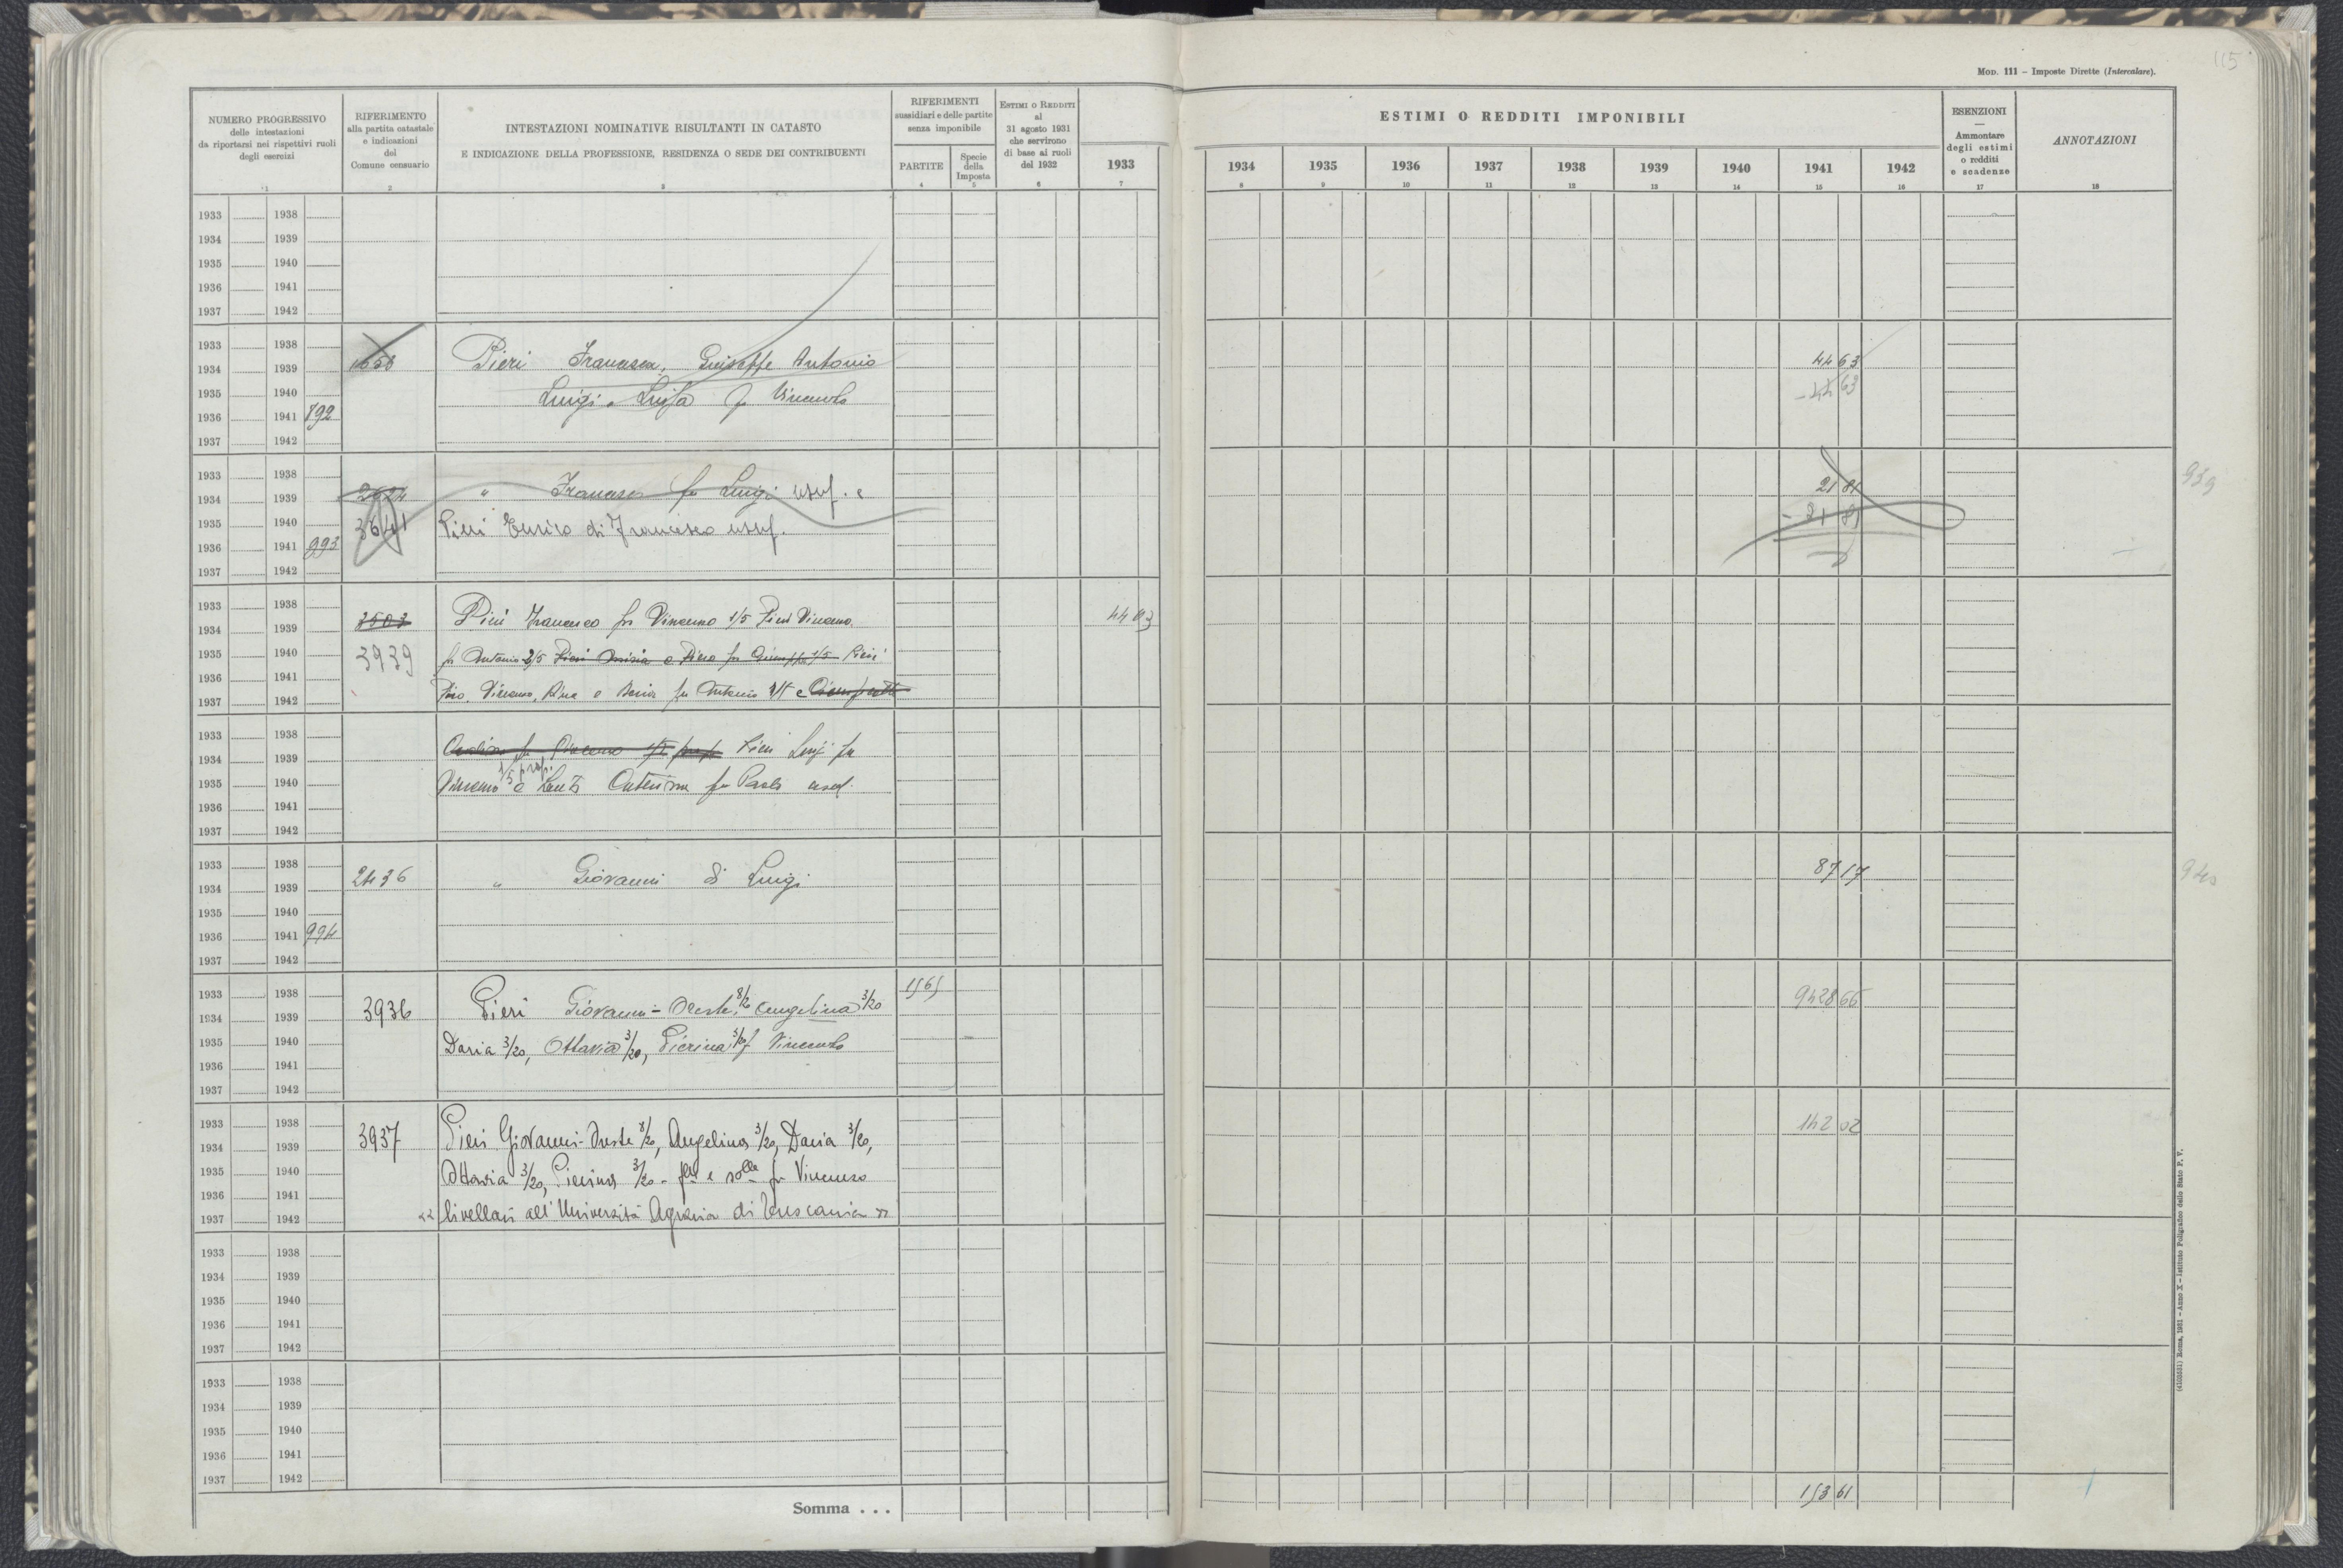 115
MOD. 111 – Imposte Dirette (Intercalare).
NUMERO PROGRESSIVO
delle intestazioni
da riportarsi nei rispettivi ruoli
degli esercizi
1
RIFERIMENTO
alla partita catastale
e indicazioni
del
Comune censuario
2
INTESTAZIONI NOMINATIVE RISULTANTI IN CATASTO
E INDICAZIONE DELLA PROFESSIONE, RESIDENZA O SEDE DEI CONTRIBUENTI
3
RIFERIMENTI
sussidiari e delle partite
senza imponibile
PARTITE
4
Specie
della
Imposta
5
ESTIMI O REDDITI
al
31 agosto 1931
che servirono
di base ai ruoli
del 1932
6
ESTIMI O REDDITI IMPONIBILI
1933 1934 1935 1936 1937 1938 1939 1940 1941 1942
7 8 9 10 11 12 13 14 15 16
ESENZIONI
—
Ammontare
degli estimi
o redditi
e scadenze
17
ANNOTAZIONI
18
1933 1938
1934 1939
1935 1940
1936 1941
1937 1942
1933 1938
1934 1939 Pieri Francesca, Giuseppe Antonio 44 63
1935 1940 Luigi e Luisa f Vincenzo - 44 63
1936 1941 892
1937 1942
1933 1938
1934 1939 2424 " Francesco fu Luigi usuf. e 21 81 939
1935 1940 3641 Pieri Enrico di Francesco usuf. - 21 81
1936 1941 993
1937 1942
1933 1938
1934 1939 3503 Pieri Francesco fu Vincenzo 1/5 Pieri Vincenzo 44 63
1935 1940 3939 fu Antonio 2/5 Pieri e Piero fu Giuseppe 1/5 Pieri
1936 1941
1937 1942 Pino, Vincenzo, e fu Antonio 1/5 e
1933 1938
1934 1939 fu Vincenzo 1/5 prop. Pieri Luigi fu
1/5 prop.
1935 1940 Vincenzo e fu Paolo usuf.
1936 1941
1937 1942
1933 1938
1934 1939 2436 " Giovanni di Luigi 87 17 940
1935 1940
1936 1941 994
1937 1942
1933 1938 1565
1934 1939 3936 Pieri Giovanni-Oreste 8/20, Angelina 3/20 9428 66
1935 1940 Daria 3/20, Ottavia 3/20, Pierina 3/20 f Vincenzo
1936 1941
1937 1942
1933 1938
1934 1939 3937 Pieri Giovanni-Oreste 8/20, Angelina 3/20, Daria 3/20, 142 02
1935 1940 Ottavia 3/20, Pierina 3/20 - flli e slle fu Vincenzo
1936 1941
1937 1942 « livellari all'Università Agraria di Tuscania »
1933 1938
1934 1939
1935 1940
1936 1941
1937 1942
1933 1938
1934 1939
1935 1940
1936 1941
1937 1942
Somma . . . 153 61
(4103531) Roma, 1931 - Anno X - Istituto Poligrafico dello Stato P. V.